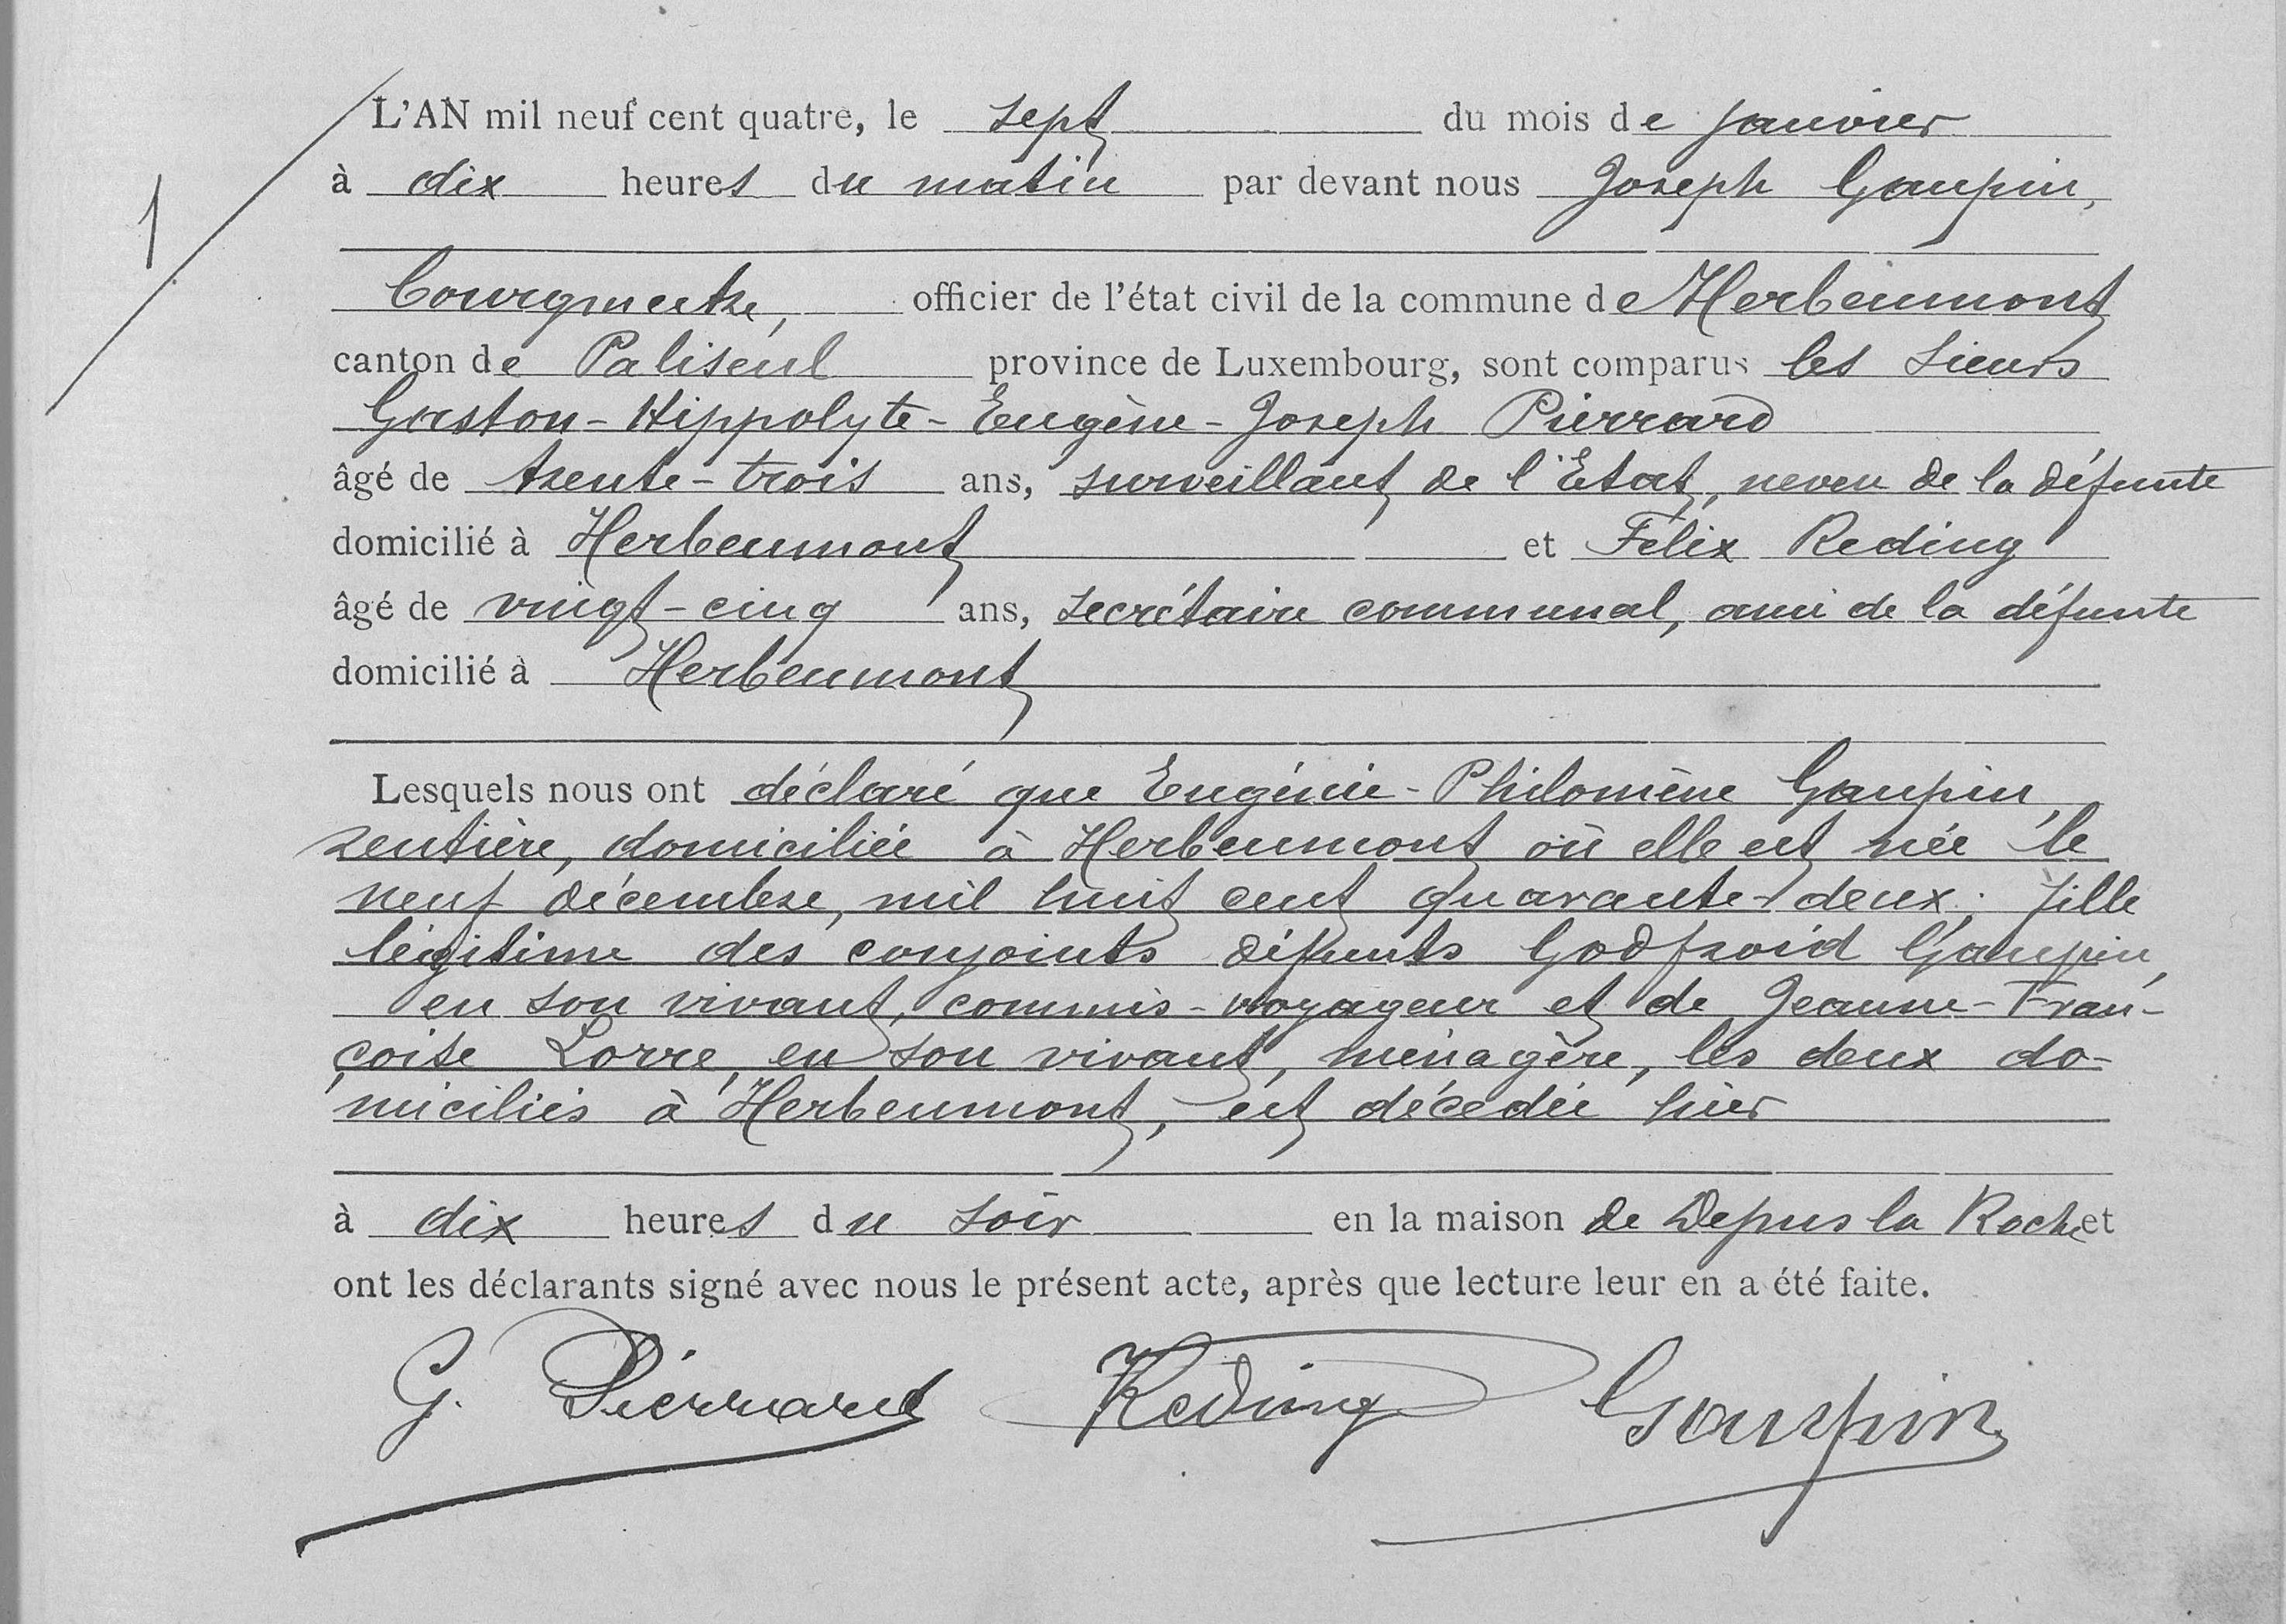 1
L'AN mil neuf cent quatre, le sept du mois de janvier
à dix heures du matin par devant nous Joseph Gaupin,
bourgmestre, officier de l'état civil de la commune de Herbeumont
canton de Paliseul province de Luxembourg, sont comparus les sieurs
Gaston-Hippolyte-Eugène-Joseph Pierrard
âgé de trente-trois ans, surveillant de l'Etat, neveu de la défunte
domicilié à Herbeumont et Félix Reding
âgé de vingt-cinq ans, secrétaire communal, ami de la défunte
domicilié à Herbeumont
Lesquels nous ont déclaré que Eugénie-Philomène Gaupin,
rentière, domiciliée à Herbeumont où elle est née le
neuf décembre, mil huit cent quarante-deux; fille
légitime des conjoints défunts Godfroid Gaupin,
en son vivant, commis-voyageur et de Jeanne-Fran-
çoise Lorre, en son vivant, ménagère, les deux do-
miciliés à Herbeumont, est décédée hier
à dix heures du soir en la maison de Depus la Roche et
ont les déclarants signé avec nous le présent acte, après que lecture leur en a été faite.
G. Pierrard Reding Gaupin